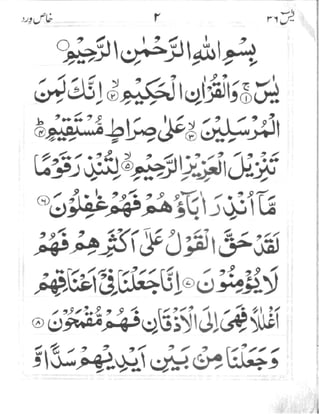 یٰسٓ ٣٦ ٢ خاص ورد
بِسْمِ اللهِ الرَّحْمٰنِ الرَّحِيْمِ
يٰسٓ ۚ﴿١﴾ وَالْقُرْاٰنِ الْحَكِيْمِ ۙ﴿٢﴾ اِنَّكَ لَمِنَ
الْمُرْسَلِيْنَ ۙ﴿٣﴾ عَلٰى صِرَاطٍ مُّسْتَقِيْمٍ ؕ﴿٤﴾
تَنْزِيْلَ الْعَزِيْزِ الرَّحِيْمِ ۙ﴿٥﴾ لِتُنْذِرَ قَوْمًا
مَّاۤ اُنْذِرَ اٰبَآؤُهُمْ فَهُمْ غٰفِلُوْنَ ﴿٦﴾
لَقَدْ حَقَّ الْقَوْلُ عَلٰۤى اَكْثَرِهِمْ فَهُمْ
لَا يُؤْمِنُوْنَ ﴿٧﴾ اِنَّا جَعَلْنَا فِيْۤ اَعْنَاقِهِمْ
اَغْلٰلًا فَهِيَ اِلَى الْاَذْقَانِ فَهُمْ مُّقْمَحُوْنَ ﴿٨﴾
وَجَعَلْنَا مِنْۢ بَيْنِ اَيْدِيْهِمْ سَدًّا وَّ